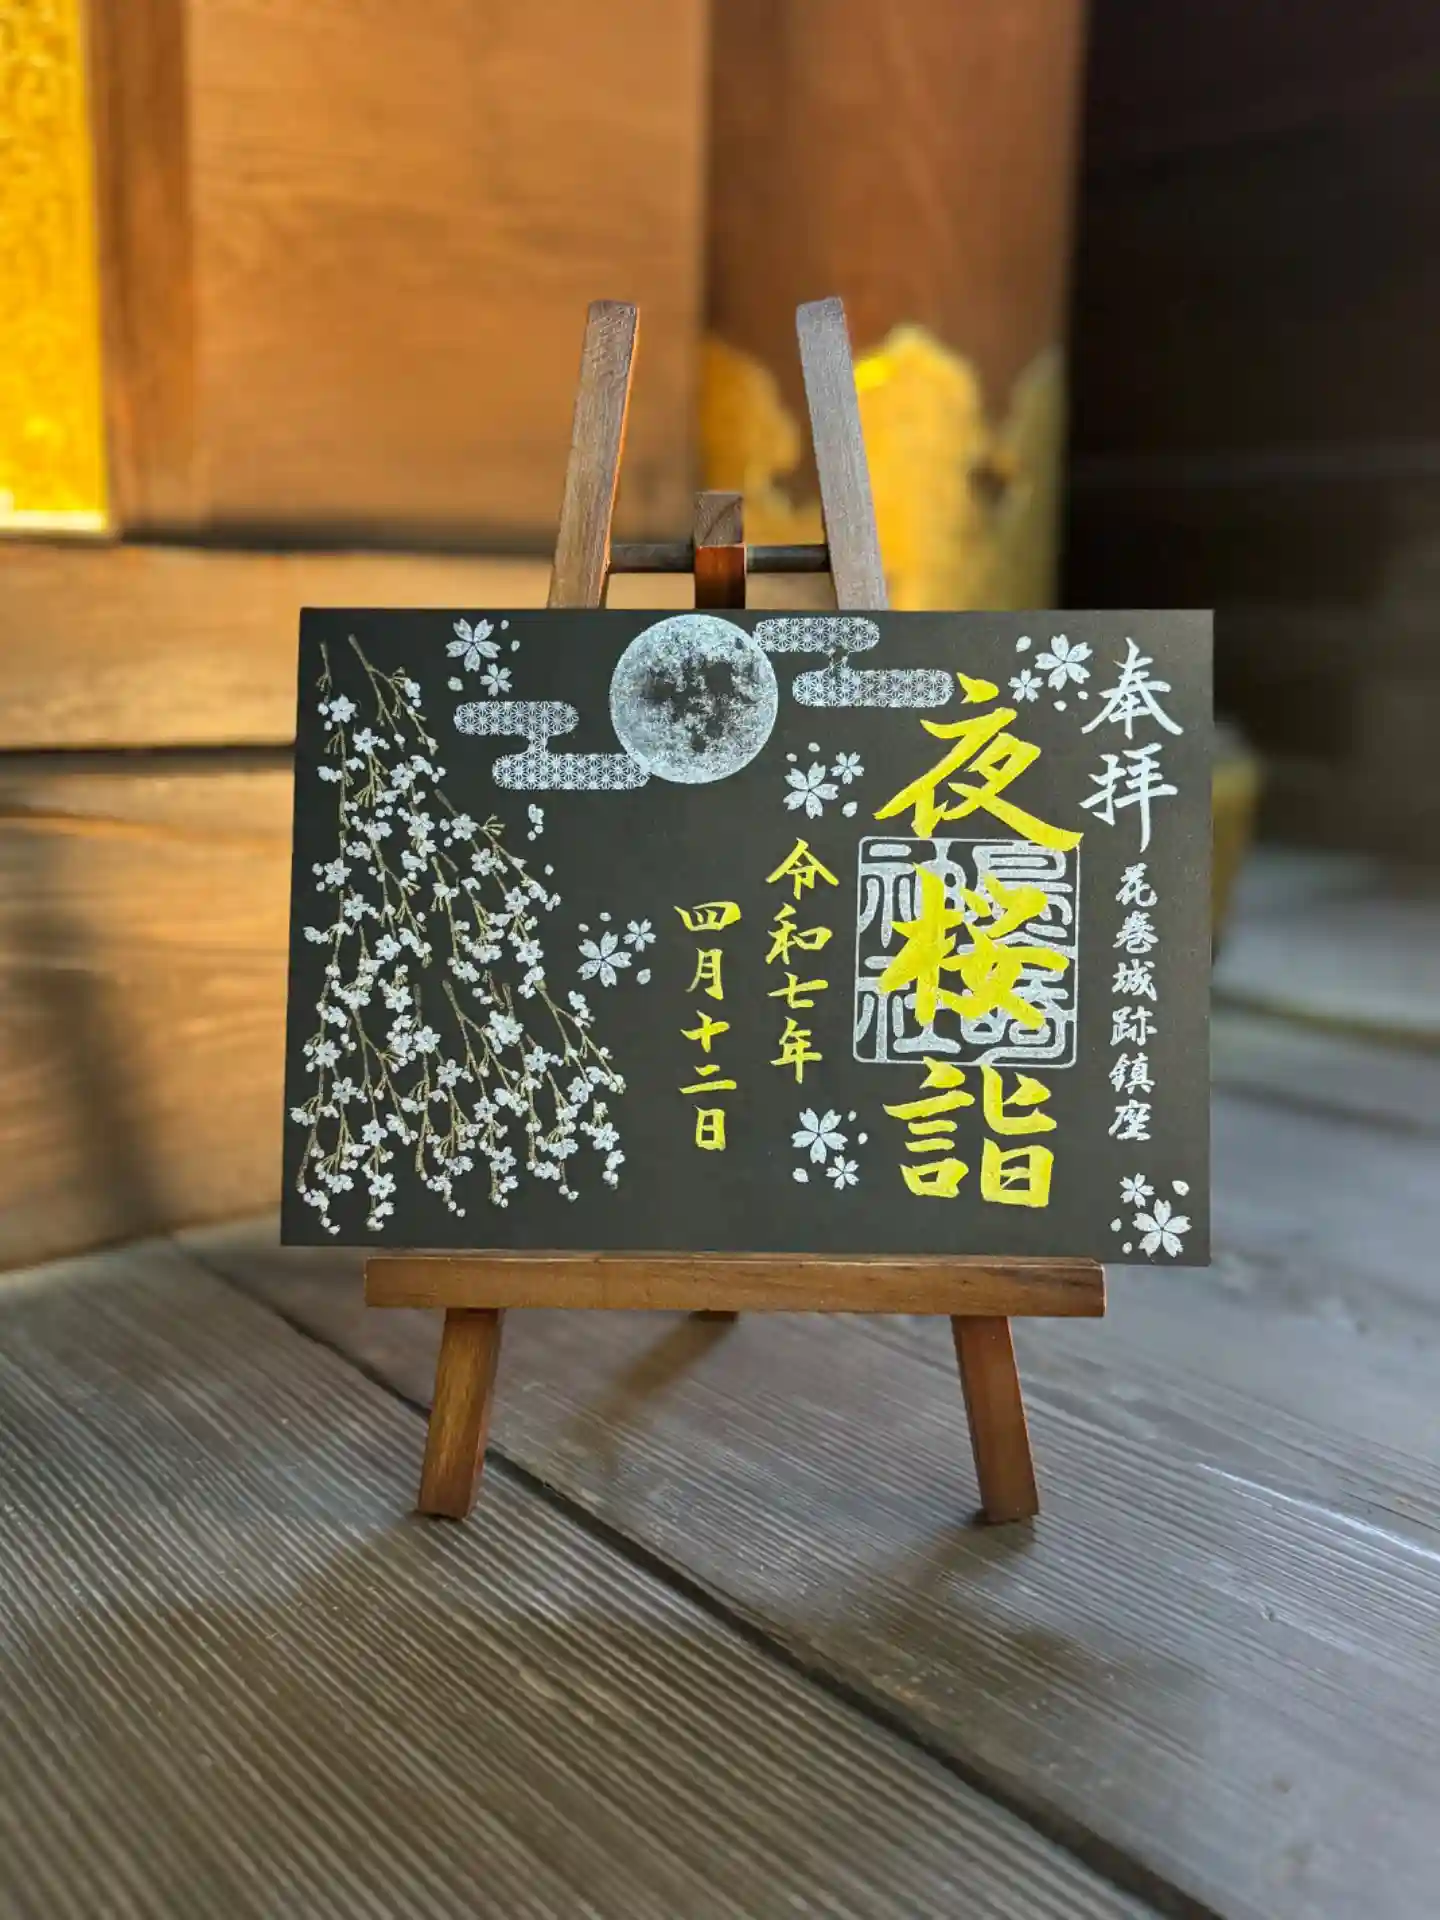 奉拝
花巻城跡鎮座
夜桜詣
鳥谷崎
神社
令和七年
四月十二日